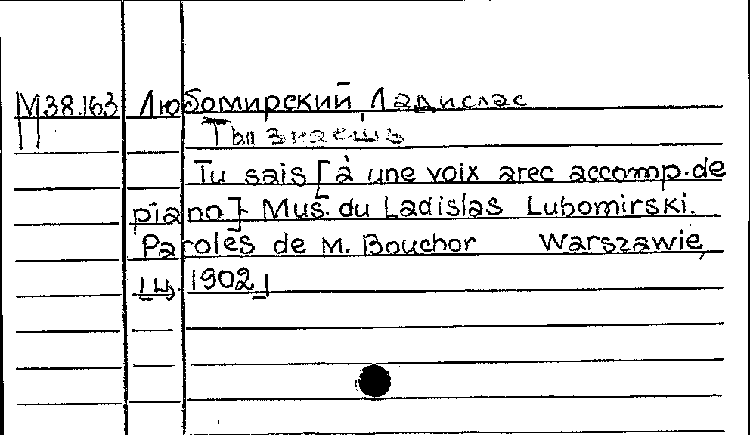 М38.163 Любомирский, Ладислас
П Ты знаешь
Tu sais [à une voix arec accomp. de
piano]. Mus. du Ladislas Lubomirski.
Paroles de M. Bouchor Warszawie,
[ц. 1902]